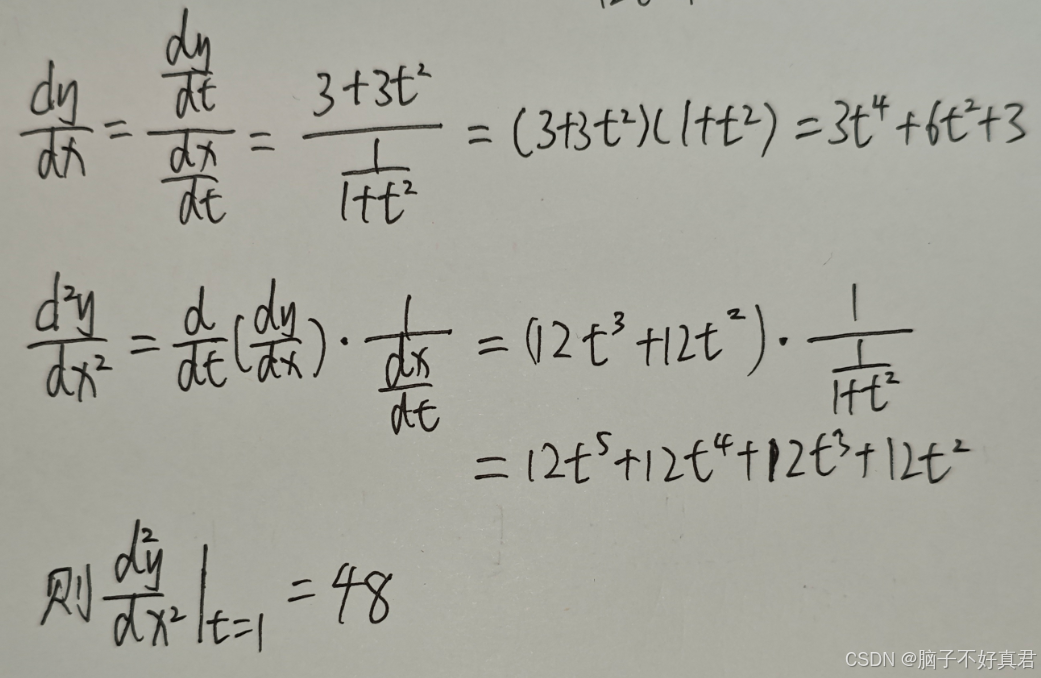 dy/dx = (dy/dt)/(dx/dt) = (3+3t²)/(1/(1+t²)) = (3+3t²)(1+t²) = 3t⁴+6t²+3
d²y/dx² = d/dt(dy/dx)·1/(dx/dt) = (12t³+12t²)·1/(1/(1+t²))
= 12t⁵+12t⁴+12t³+12t²
则 d²y/dx²|t=1 = 48
CSDN @脑子不好真君